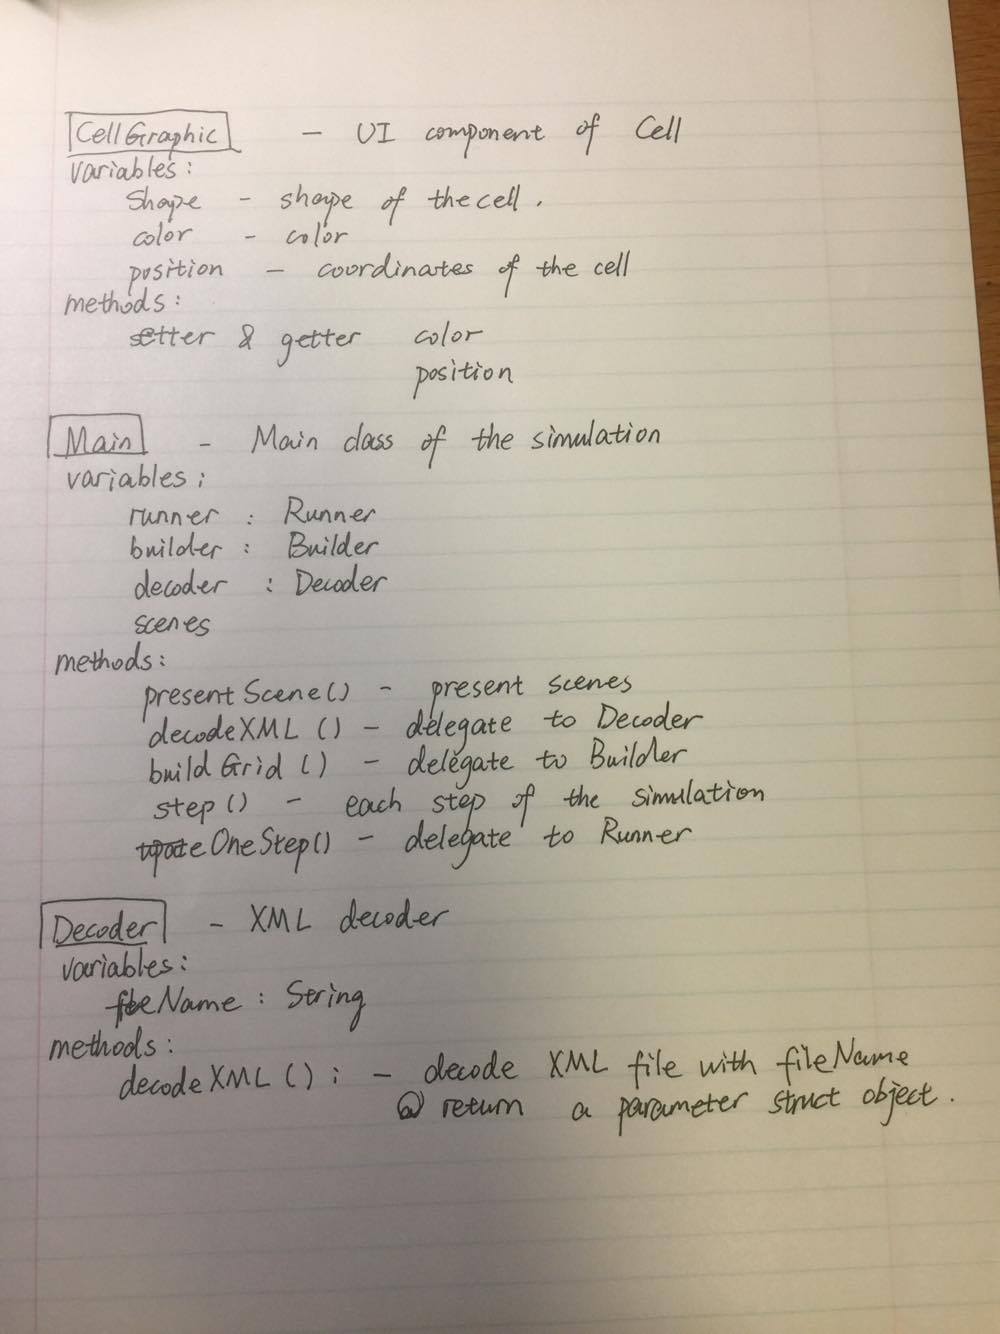 CellGraphic - UI component of Cell
variables:
Shape - shape of the cell.
color - color
position - coordinates of the cell
methods:
setter & getter color
position
Main - Main class of the simulation
variables:
runner : Runner
builder : Builder
decoder : Decoder
scenes
methods:
presentScene() - present scenes
decodeXML () - delegate to Decoder
buildGrid () - delegate to Builder
step () - each step of the simulation
OneStep() - delegate to Runner
Decoder - XML decoder
variables:
fileName : String
methods:
decodeXML () ; - decode XML file with fileName
@ return a parameter struct object.